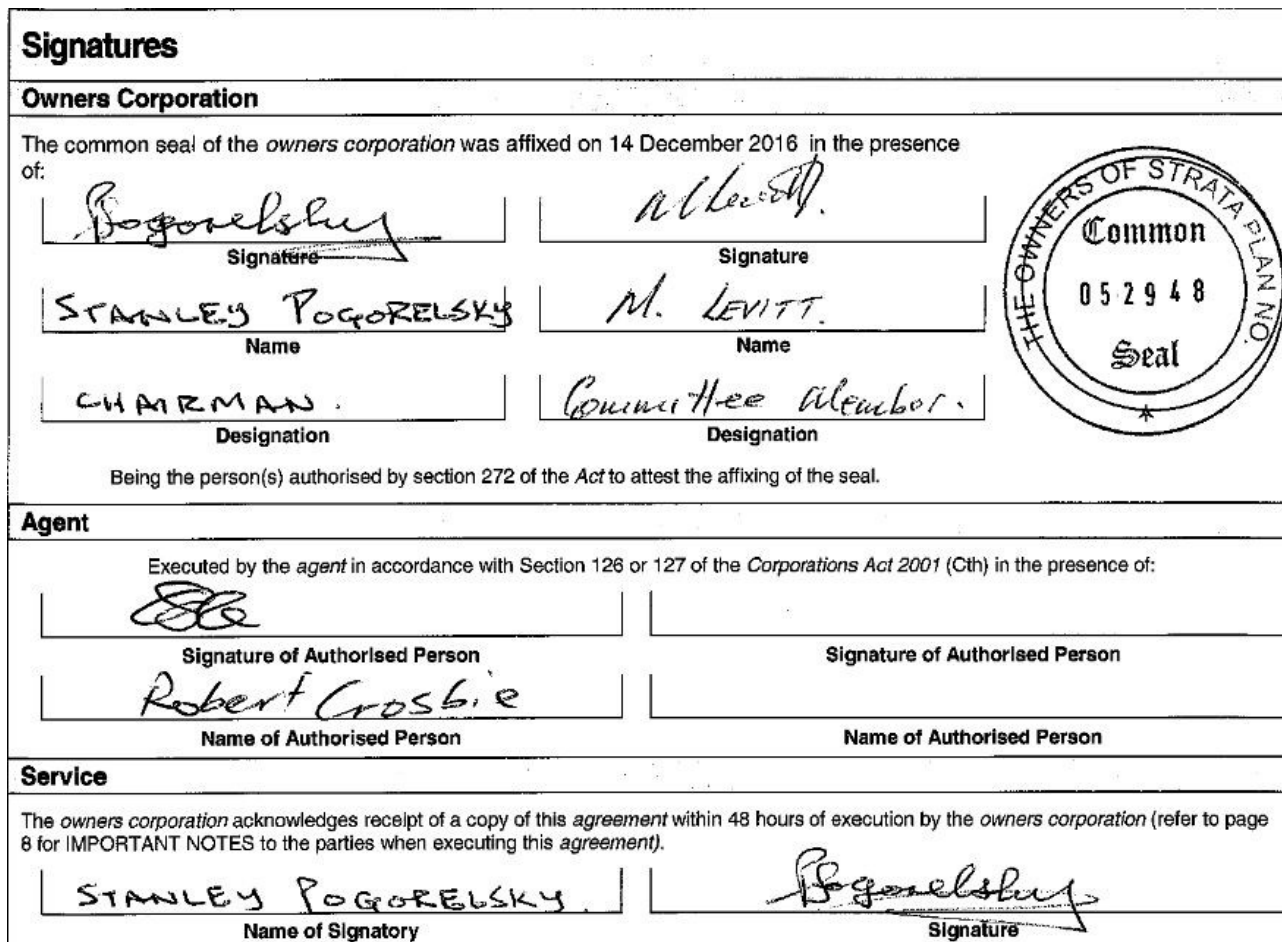 Signatures
Owners Corporation
The common seal of the owners corporation was affixed on 14 December 2016 in the presence
of:
Pogorelsky
Signature
Signature
STANLEY POGORELSKY
M. LEVITT.
Name
Name
CHAIRMAN.
Committee Member.
Designation
Designation
THE OWNERS OF STRATA PLAN NO.
Common
052948
Seal
Being the person(s) authorised by section 272 of the Act to attest the affixing of the seal.
Agent
Executed by the agent in accordance with Section 126 or 127 of the Corporations Act 2001 (Cth) in the presence of:
Signature of Authorised Person
Signature of Authorised Person
Robert Crosbie
Name of Authorised Person
Name of Authorised Person
Service
The owners corporation acknowledges receipt of a copy of this agreement within 48 hours of execution by the owners corporation (refer to page
8 for IMPORTANT NOTES to the parties when executing this agreement).
STANLEY POGORELSKY.
Pogorelsky
Name of Signatory
Signature